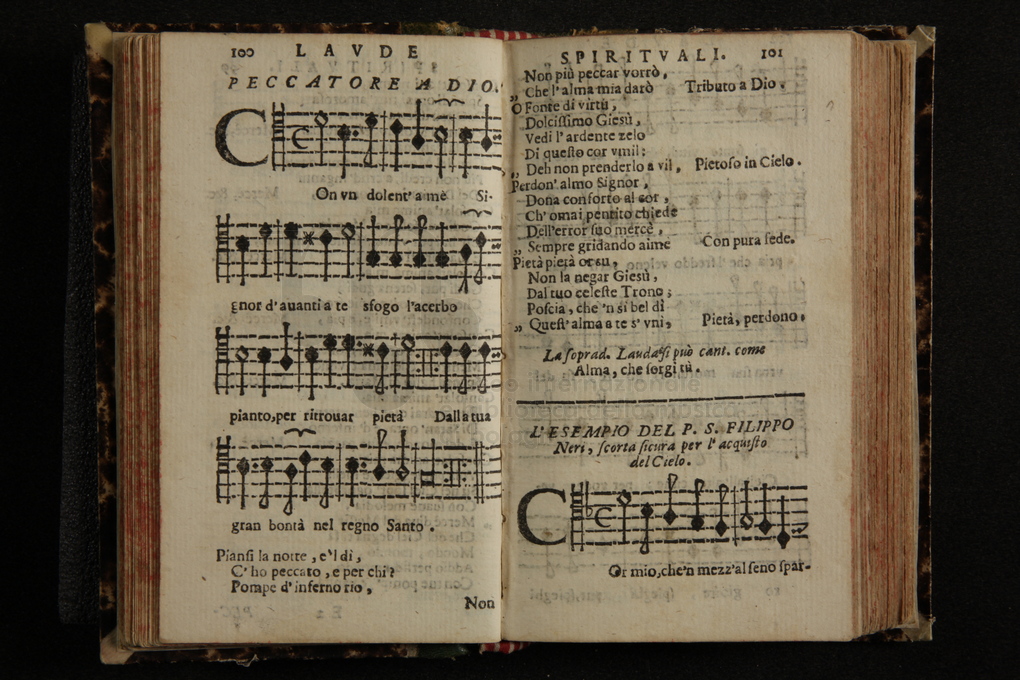 100 LAVDE
PECCATORE A DIO.
COn vn dolent' a mè Si-
gnor d'auanti a te sfogo l'acerbo
pianto, per ritrouar pietà Dalla tua
gran bontà nel regno Santo.
Piansi la notte, e'l dì,
C' ho peccato, e per chi?
Pompe d' inferno rio,
Non
SPIRITVALI. 101
Non più peccar vorrò,
„ Che l' alma mia darò Tributo a Dio.
O Fonte di virtù,
Dolcissimo Giesù,
Vedi l' ardente zelo
Di questo cor vmil:
„ Deh non prenderlo a vil, Pietoso in Cielo.
Perdon' almo Signor,
Dona conforto al cor,
Ch' omai pentito chiede
Dell'error suo mercè,
„ Sempre gridando aimè Con pura fede.
Pietà pietà or su,
Non la negar Giesù,
Dal tuo celeste Trono;
Poscia, che 'n sì bel dì
„ Quest' alma a te s' vnì, Pietà, perdono.
La soprad. Lauda si può cant. come
Alma, che sorgi tù.
L' ESEMPIO DEL P. S. FILIPPO
Neri, scorta sicura per l' acquisto
del Cielo.
COr mio, che'n mezz'al seno spar-